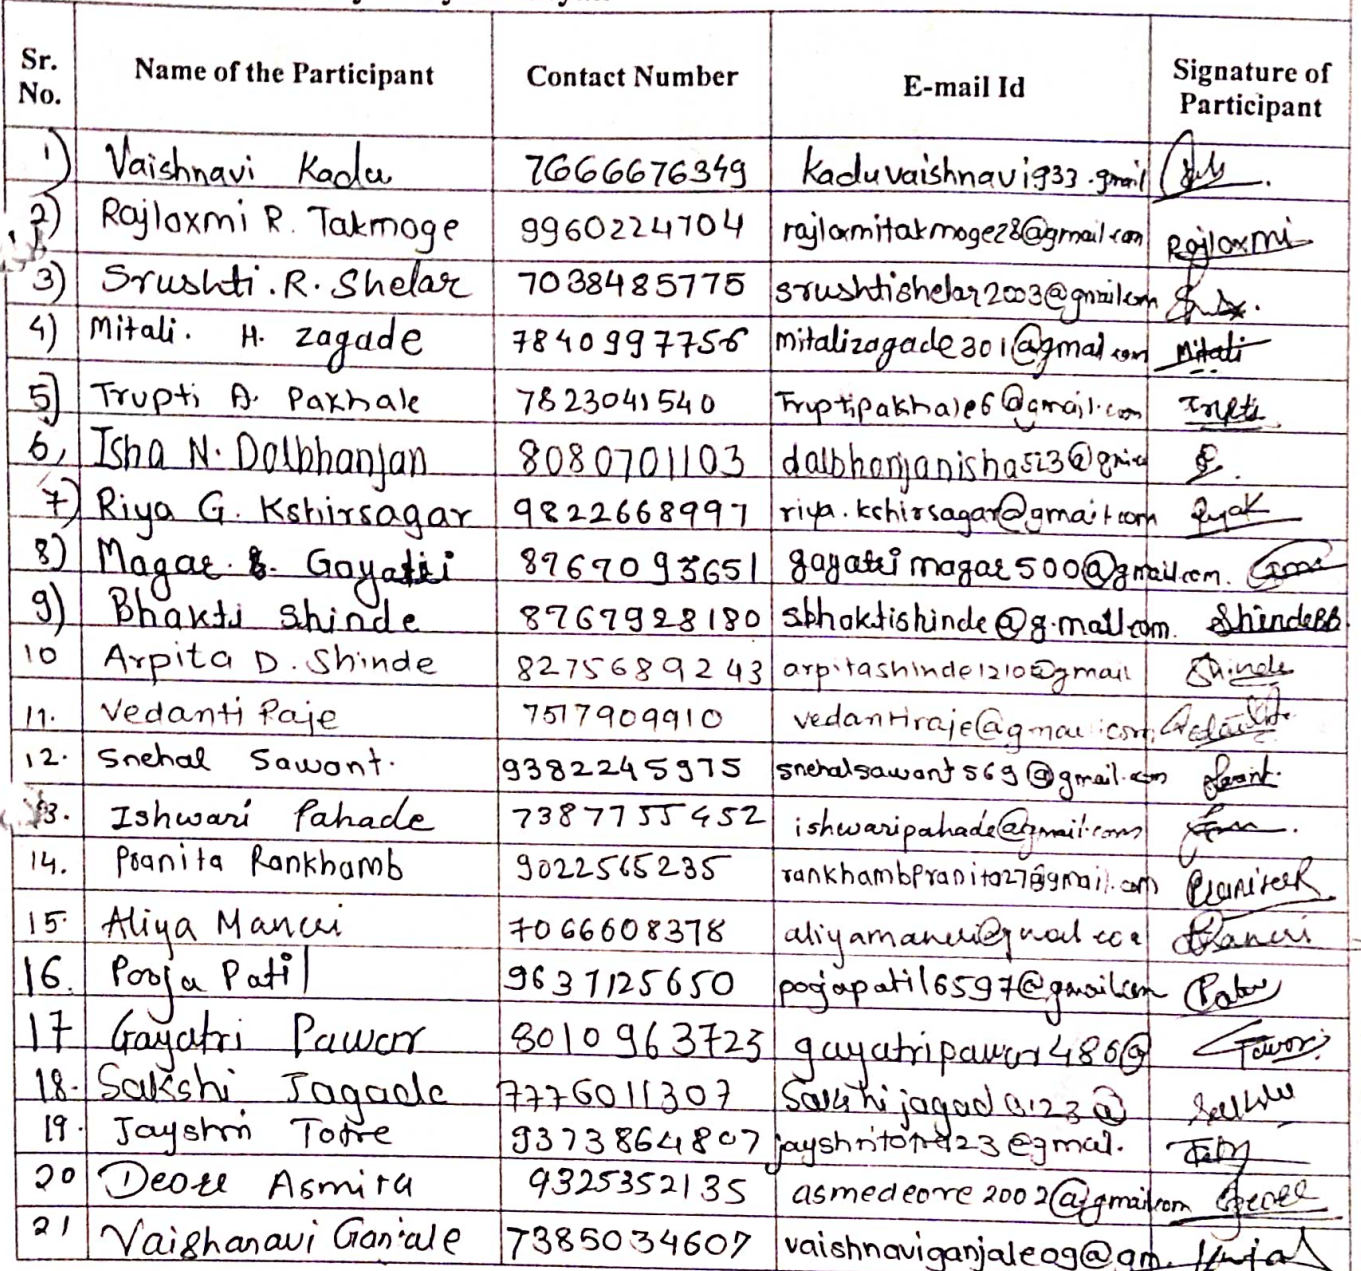 Sr. No. Name of the Participant Contact Number E-mail Id Signature of Participant
1) Vaishnavi Kadu 7666676349 kaduvaishnavi933.gmail
2) Rajlaxmi R. Takmoge 9960224704 rajlaxmitakmoge28@gmail.com Rajlaxmi
3) Srushti.R.Shelar 7038485775 srushtishelar2003@gmail.com
4) Mitali. H. Zagade 7840997756 mitalizagade301@gmal.com Mitali
5) Trupti A. Pakhale 7823041540 Truptipakhale6@gmail.com Trupti
6, Isha N. Dalbhanjan 8080701103 dalbhanjanisha523@gmail
7) Riya G. Kshirsagar 9822668997 riya.kshirsagar@gmail.com RiyaK
8) Magar S. Gayatri 8767093651 gayatrimagar500@gmail.com.
9) Bhakti Shinde 8767928180 sbhaktishinde@g.mail.com. ShindeBB
10 Arpita D. Shinde 8275689243 arpitashinde1210@gmail Shinde
11. Vedanti Raje 7517909910 vedantiraje@gmail.com
12. Snehal Sawant. 9382245975 snehalsawant569@gmail.com
13. Ishwari Pahade 7387755452 ishwaripahade@gmail.com
14. Pranita Rankhamb 9022565235 rankhambpranita27@gmail.com PranitaR
15. Aliya Maneri 7066608378 aliyamaneri@gmail.com Maneri
16. Pooja Patil 9637125650 poojapatil6597@gmail.com
17 Gayatri Pawar 8010963723 gayatripawar486@ Pawar
18. Sakshi Jagade 7776011307 Sakshijagad0123@
19. Jayshri Totre 9373864807 jayshritotre123@gmal.
20 Deore Asmita 9325352135 asmedeore2002@gmail.com Deore
21 Vaishanavi Ganjale 7385034607 vaishnaviganjale09@gm.